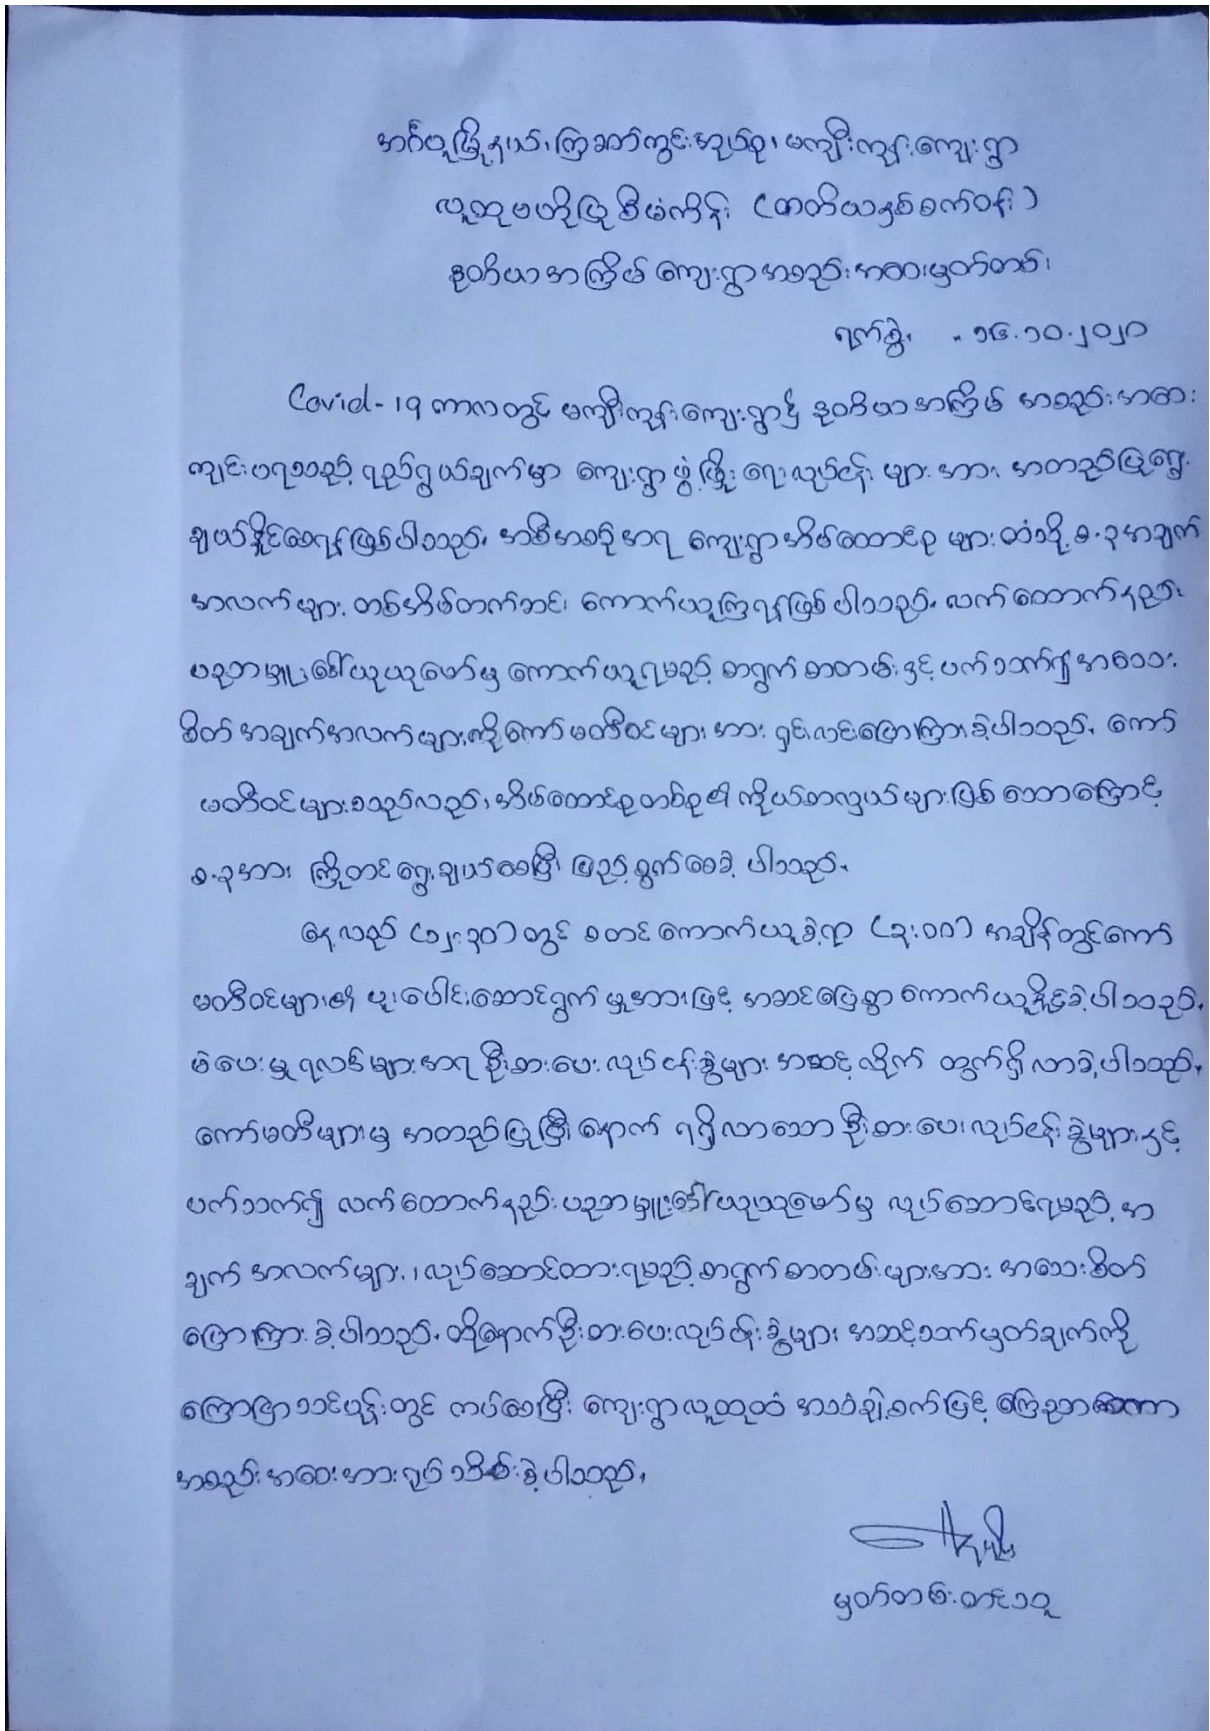 အင်္ဂပူမြို့နယ်၊ ကြခတ်ကွင်းအုပ်စု၊ မကျီးကုန်းကျေးရွာ
လူထုဗဟိုပြုစီမံကိန်း (တတိယနှစ်စက်ဝန်း)
ဒုတိယအကြိမ် ကျေးရွာအစည်းအဝေးမှတ်တမ်း
ရက်စွဲ၊ ၊ ၁၆.၁၀.၂၀၂၀
Covid-19 ကာလတွင် မကျီးကုန်းကျေးရွာ၌ ဒုတိယအကြိမ် အစည်းအဝေး
ကျင်းပရသည့် ရည်ရွယ်ချက်မှာ ကျေးရွာဖွံ့ဖြိုးရေးလုပ်ငန်းများအား အတည်ပြုရွေး
ချယ်နိုင်စေရန်ဖြစ်ပါသည်။ အစီအစဉ်အရ ကျေးရွာအိမ်ထောင်စုများထံသို့ စ-၃ အချက်
အလက်များ တစ်အိမ်တက်ဆင်း ကောက်ယူကြရန်ဖြစ်ပါသည်။ လက်ထောက်နည်း
ပညာမှူး ဒေါ်ယုယုမော်မှ ကောက်ယူရမည့် စာရွက်စာတမ်းနှင့်ပက်သက်၍ အသေး
စိတ်အချက်အလက်များကို ကော်မတီဝင်များအား ရှင်းလင်းပြောကြားခဲ့ပါသည်။ ကော်
မတီဝင်များသည်လည်း အိမ်ထောင်စုတစ်စု၏ ကိုယ်စားလှယ်များဖြစ်သောကြောင့်
စ-၃အား ကြိုတင်ရွေးချယ်စေပြီး ဖြည့်စွက်စေခဲ့ပါသည်။
နေ့လည် (၁၂:၃၀) တွင် စတင်ကောက်ယူခဲ့ရာ (၃:၀၀) အချိန်တွင်ကော်
မတီဝင်များ၏ ပူးပေါင်းဆောင်ရွက်မှုအားဖြင့် အဆင်ပြေစွာ ကောက်ယူနိုင်ခဲ့ပါသည်။
မဲပေးမှုရလဒ်များအရ ဦးစားပေးလုပ်ငန်းခွဲများ အဆင့်လိုက် ထွက်ရှိလာခဲ့ပါသည်။
ကော်မတီများမှ အတည်ပြုပြီးနောက် ရရှိလာသော ဦးစားပေးလုပ်ငန်းခွဲများနှင့်
ပက်သက်၍ လက်ထောက်နည်းပညာမှူးဒေါ်ယုယုမော်မှ လုပ်ဆောင်ရမည့် အ
ချက်အလက်များ၊ လုပ်ဆောင်ထားရမည့် စာရွက်စာတမ်းများအား အသေးစိတ်
ပြောကြားခဲ့ပါသည်။ ထို့နောက်ဦးစားပေးလုပ်ငန်းခွဲများ အဆင့်သတ်မှတ်ချက်ကို
ကြော်ငြာသင်ပုန်းတွင် ကပ်စေပြီး ကျေးရွာလူထုထံ အသံချဲ့စက်ဖြင့် ကြေညာကာ
အစည်းအဝေးအား ရုပ်သိမ်းခဲ့ပါသည်။
မှတ်တမ်းတင်သူ